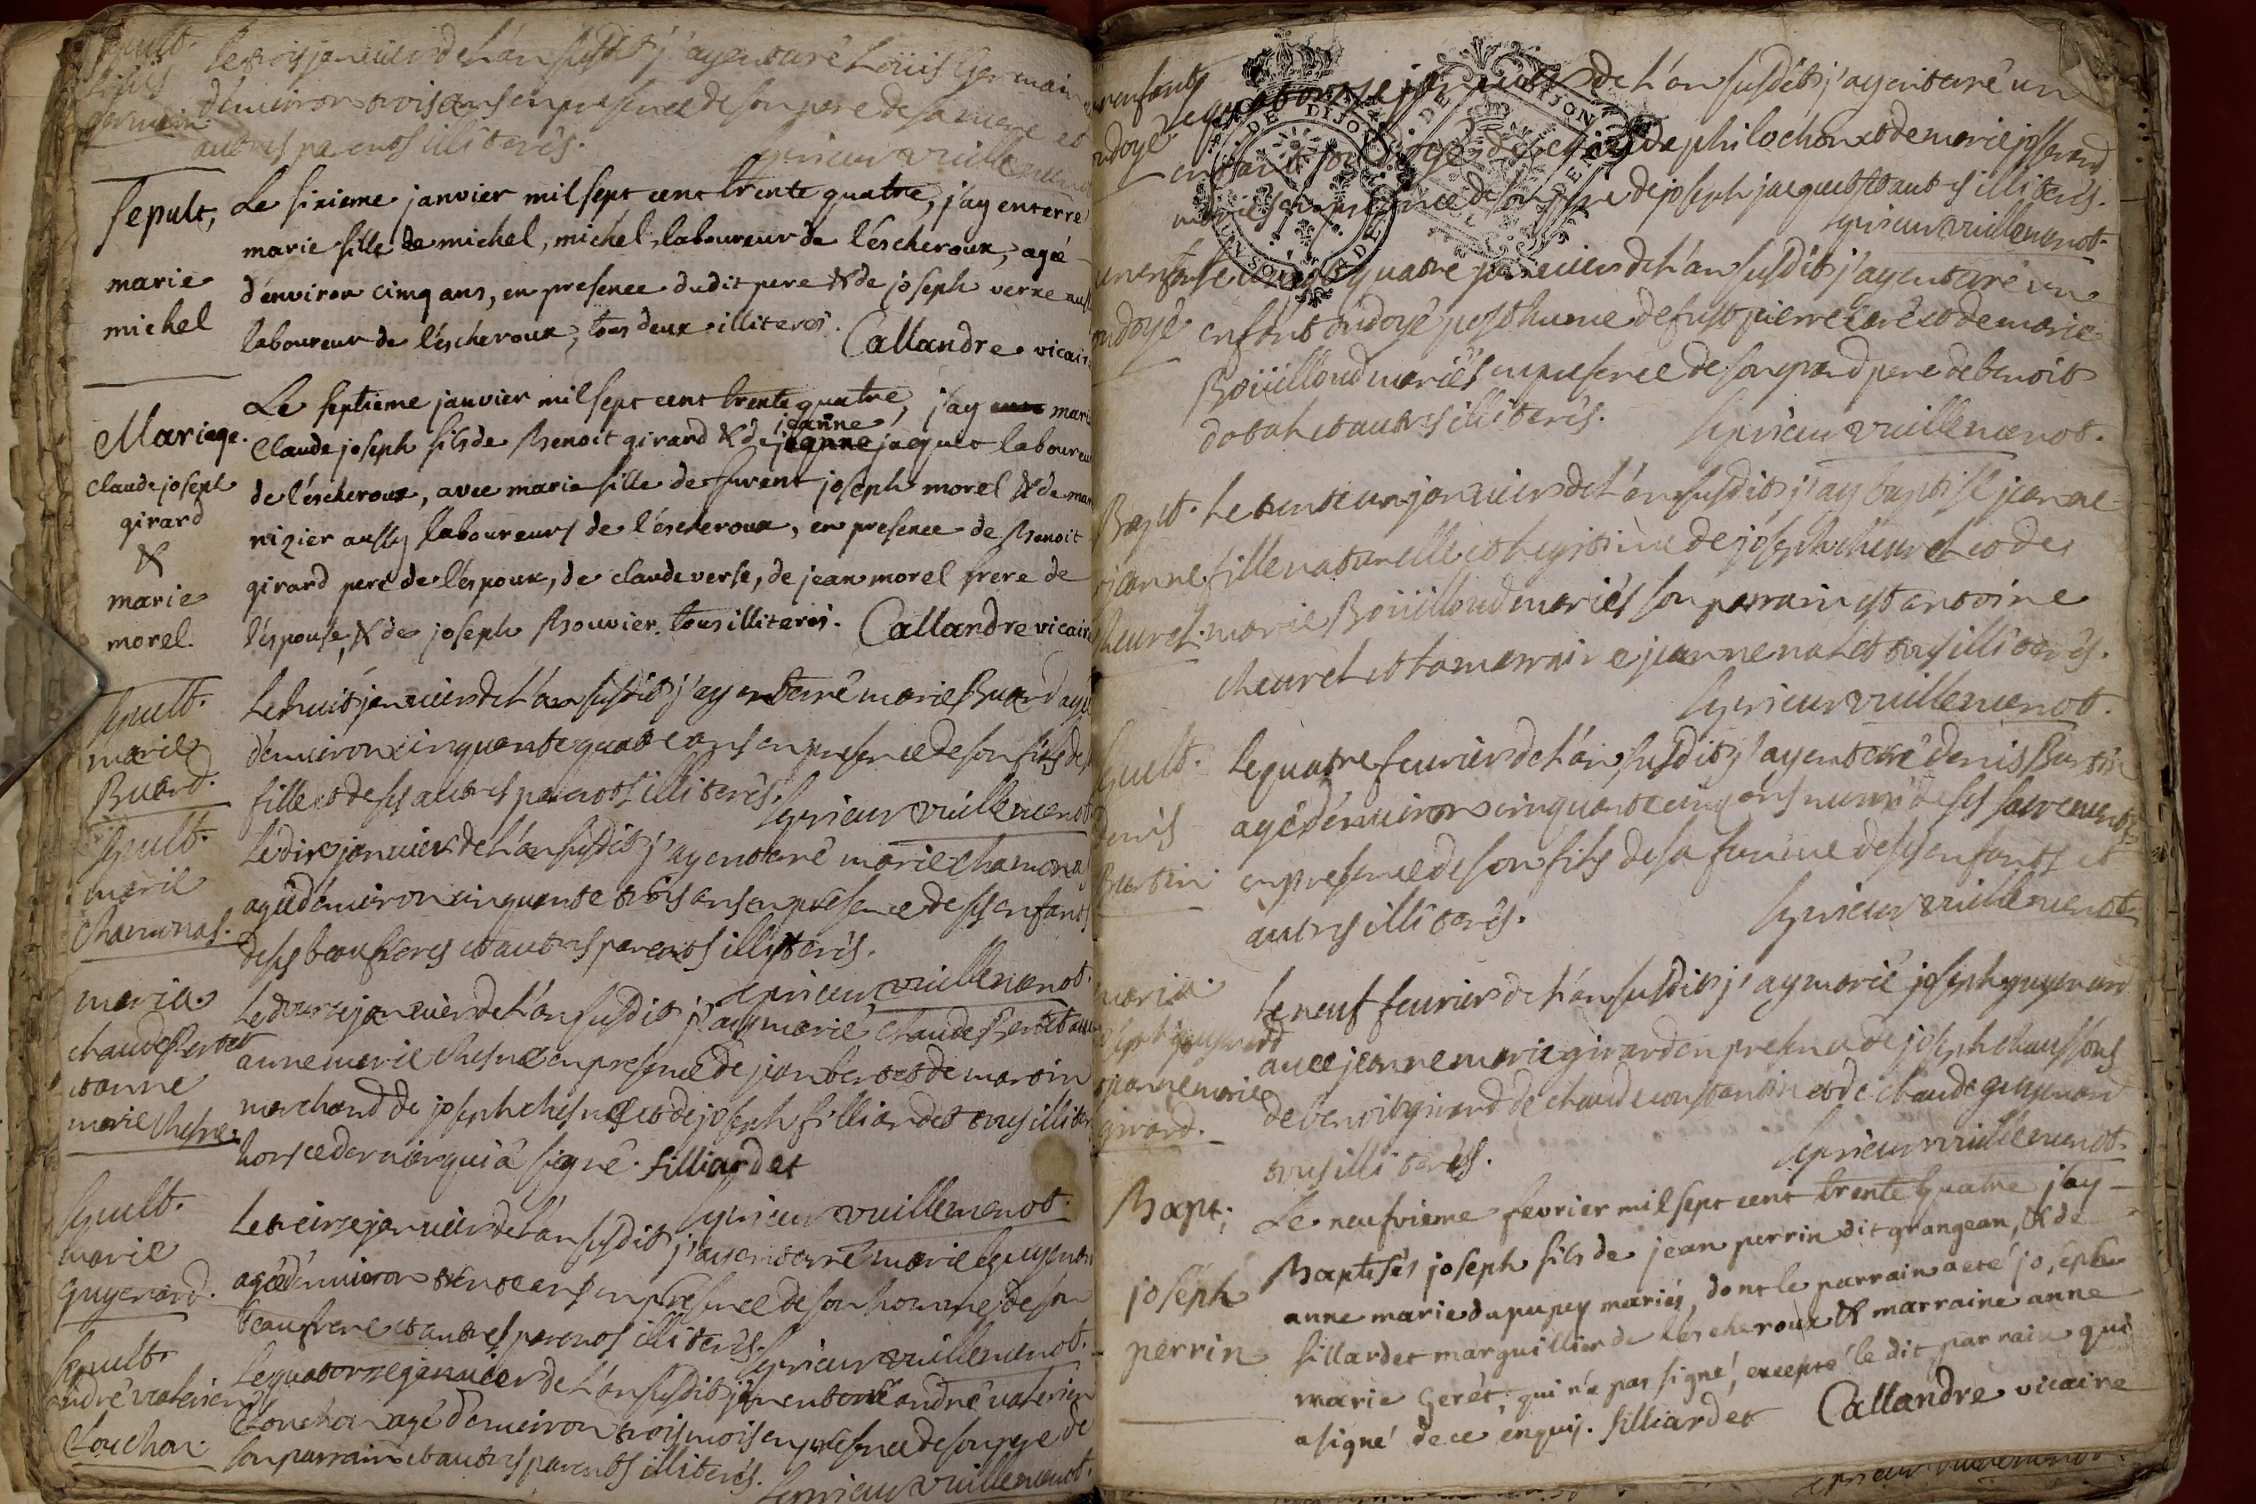 Sepult.
Louis
germain
le trois janvier de L'an susdit j'ay enterré Loüis Germain
d'environ trois ans en presence de son pere de sa mere et
autres parents illiterés.
Leprieur vuillemenot
Sepult,
marie
michel
Le sixieme janvier mil sept cent trente quatre, j'ay enterré
marie fille de michel, michel, laboureur de l'éscheroux, agée
d'environ cinq ans, en presence dudit pere & de joseph verne aussi
laboureur de l'éscheroux, tous deux illiterés.
Callandre vicaire
Mariage.
claude joseph
girard
&
marie
morel.
Le septieme janvier mil sept cent trente quatre, j'ay marié
jeanne
Claude joseph fils de Benoit girard & de jeanne jacquet laboureur
de l'éscheroux, avec marie fille de furent joseph morel & de marie
nizier aussy laboureurs de l'éscheroux, en presence de Benoit
girard pere de l'époux, de claude verse, de jean morel frere de
l'éspouse, & de joseph Bouvier, tous illiterés. Callandre vicaire
Sepult.
marie
Buard.
Le huit janvier de L'an susdit j'ay enterré marie Buard agée
d'environ cinquante quatre ans en presence de son fils de sa
fille et de ses autres parents illiterés.
Leprieur vuillemenot
Sepult.
marie
Chamonas.
Le dix janvier de L'an susdit j'ay enterré marie chamonas
agée d'environ cinquante trois ans en presence de ses enfants
de ses beaufreres et autres parents illiterés.
Leprieur vuillemenot.
maria.
claude Bertet
et anne
marie Chesne.
Le douze janvier de L'an susdit j'ay marié claude Bertet avec
anne marie chesne en presence de jean bertet de martin
marchand de joseph chesne et de joseph filliardet tous illiterés
hors ce dernier qui a signé. filliardet
Leprieur vuillemenot.
Sepult.
marie
guyenard.
Le treize janvier de L'an susdit j'ay enterré marie guyenard
agée d'environ trente ans en presence de son homme de son
beaufrere et autres parents illiterés.
Leprieur vuillemenot.
Sepult.
andré valerien
Clouchon.
Le quatorze janvier de L'an susdit j'ay enterré andré valerien
Clouchon agé d'environ trois mois en presence de son pere de
son parrain et autres parents illiterés.
Leprieur vuillemenot.
un enfant
ondoyé
Le quatorze janvier de L'an susdit j'ay enterré un
enfant ondoyé de philochon et de marie josserand
mariés en presence de son pere de joseph jacquet et autres illiterés.
Leprieur vuillemenot.
DE DIJON
un enfant
ondoyé.
Le vingt quatre janvier de L'an susdit j'ay enterré un
enfant ondoyé posthume de fut pierre et de marie
Boüilloud mariés en presence de son grand pere de benoit
datal et autres illiterés.
Leprieur vuillemenot.
Bapt.
jeanne
cheuret.
Le trente un janvier de L'an susdit j'ay baptisé jeanne
fille naturelle et legitime de joseph cheuret et de
marie Boüilloud mariés son parrain est antoine
cheuret et la marraine jeanne nalet tous illiterés.
Leprieur vuillemenot.
Sepult.
denis
Burtin.
Le quatre feurier de L'an susdit j'ay enterré denis Burtin
agé d'environ cinquante cinq ans muni de ses sacrements
en presence de son fils de sa femme de ses enfants et
autres illiterés.
Leprieur vuillemenot
maria.
joseph guyenard
et jeanne marie
girard.
Le neuf feurier de L'an susdit j'ay marié joseph guyenard
avec jeanne marie girard en presence de joseph chaussons
de benoit girard de claude constantin et de claude guyenard
tous illiterés.
Leprieur vuillemenot.
Bapt;
joséph
perrin
Le neufvieme fevrier mil sept cent trente quatre j'ay
Baptisés joseph fils de jean perrin dit grangean, & de
anne marie dupupey mariés, dont le parrain a eté joseph
fillardet marguillier de l'escheroux & marraine anne
marie Gerét, qui n'a pas signé, excepté le dit parrain qui
a signé de ce enquis. filliardet Callandre vicaire